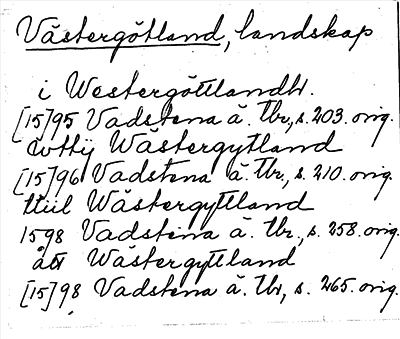 Västergötland, landskap
i Westergöttlandh.
[15]95 Vadstena ä. Tbr, s. 203. orig.
wttij Wästergytland
[15]96 Vadstena ä. Tbr., s. 210. orig.
ttiil Wästergyttland
1598 Vadstena ä. Tbr., s. 258. orig.
ått Wästergyttland
[15]98 Vadstena ä. Tbr, s. 265. orig.